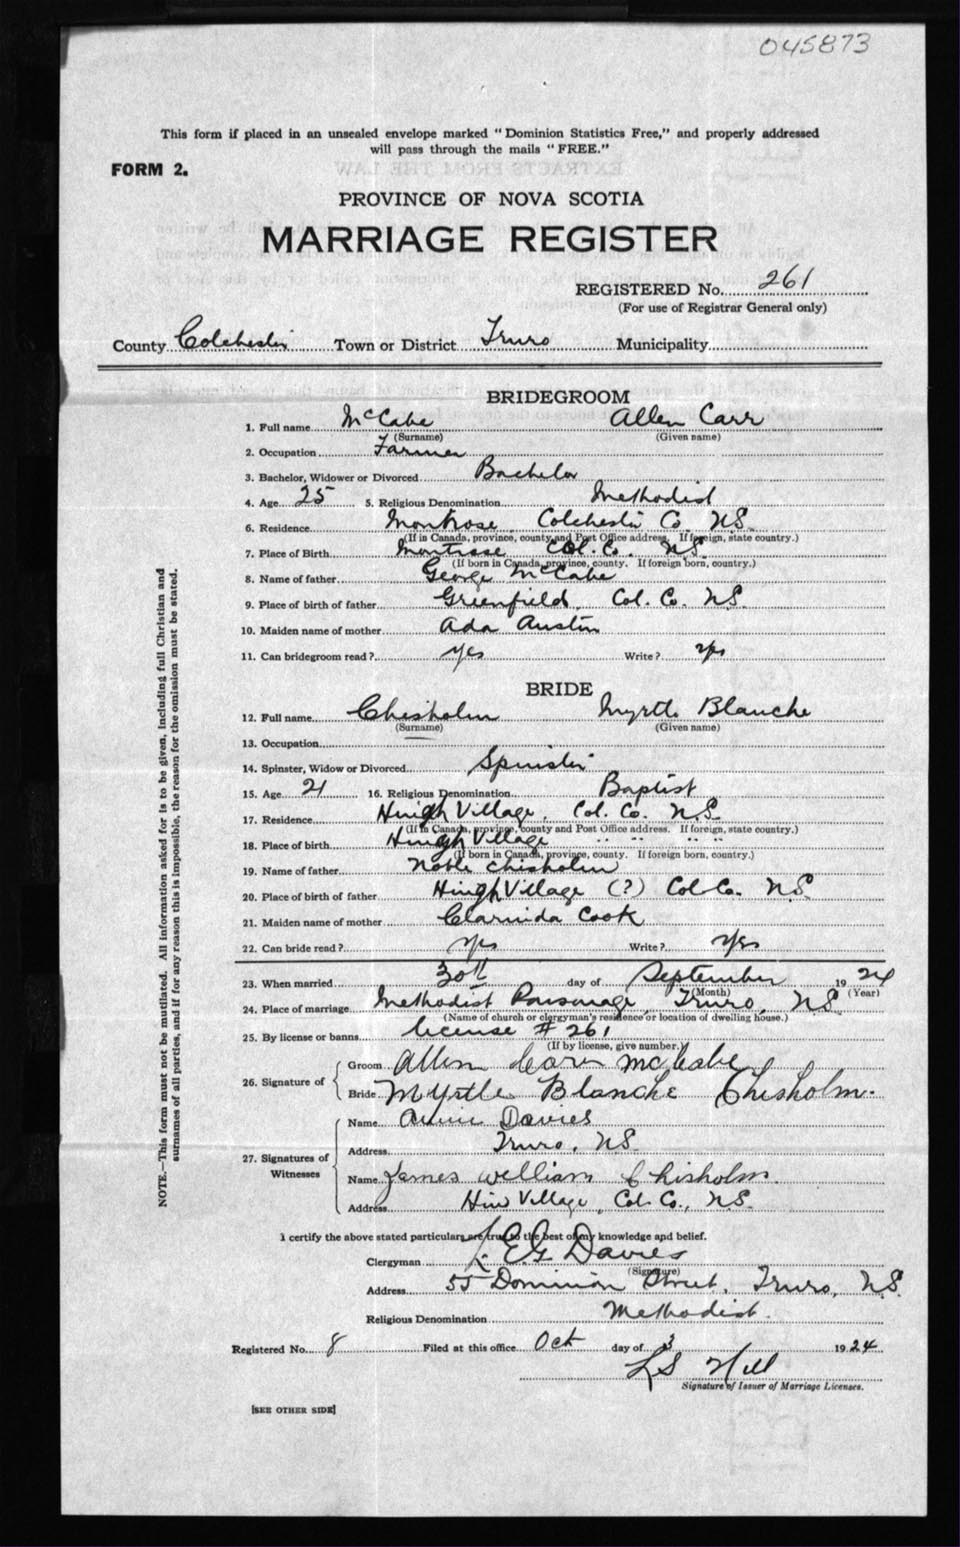 045873
This form if placed in an unsealed envelope marked "Dominion Statistics Free," and properly addressed
will pass through the mails "FREE."
FORM 2.
PROVINCE OF NOVA SCOTIA
MARRIAGE REGISTER
REGISTERED No. 261
(For use of Registrar General only)
County Colchester Town or District Truro Municipality
BRIDEGROOM
1. Full name McCabe Allen Carr
(Surname) (Given name)
2. Occupation Farmer
3. Bachelor, Widower or Divorced Bachelor
4. Age 25 5. Religious Denomination Methodist
6. Residence Montrose Colchester Co. N.S.
(If in Canada, province, county and Post Office address. If foreign, state country.)
7. Place of Birth Montrose Col. Co. N.S.
(If born in Canada, province, county. If foreign born, country.)
8. Name of father George McCabe
9. Place of birth of father Greenfield, Col. Co. N.S.
10. Maiden name of mother Ada Austin
11. Can bridegroom read? yes Write? yes
BRIDE
12. Full name Chisholm Myrtle Blanche
(Surname) (Given name)
13. Occupation
14. Spinster, Widow or Divorced Spinster
15. Age 21 16. Religious Denomination Baptist
17. Residence Village, Col. Co. N.S.
(If in Canada, province, county and Post Office address. If foreign, state country.)
18. Place of birth Village " " " "
(If born in Canada, province, county. If foreign born, country.)
19. Name of father Noble Chisholm
20. Place of birth of father Village (?) Col. Co. N.S.
21. Maiden name of mother Clarinda Cook
22. Can bride read? yes Write? Yes
23. When married 30th day of September 1924
(Month) (Year)
24. Place of marriage Methodist Parsonage, Truro, N.S.
(Name of church or clergyman's residence or location of dwelling house.)
25. By license or banns license # 261
(If by license, give number.)
26. Signature of Groom Allen Carr McCabe
Bride Myrtle Blanche Chisholm.
27. Signatures of Witnesses Name Annie Davies
Address Truro, N.S.
Name James William Chisholm.
Address Village, Col. Co., N.S.
I certify the above stated particulars are true to the best of my knowledge and belief.
Clergyman E G Davies
(Signature)
Address 55 Dominion Street, Truro, N.S.
Religious Denomination Methodist.
Registered No. 8 Filed at this office Oct day of 3 1924
L S Hill
Signature of Issuer of Marriage Licenses.
[SEE OTHER SIDE]
NOTE.—This form must not be mutilated. All information asked for is to be given, including full Christian and
surnames of all parties, and if for any reason this is impossible, the reason for the omission must be stated.